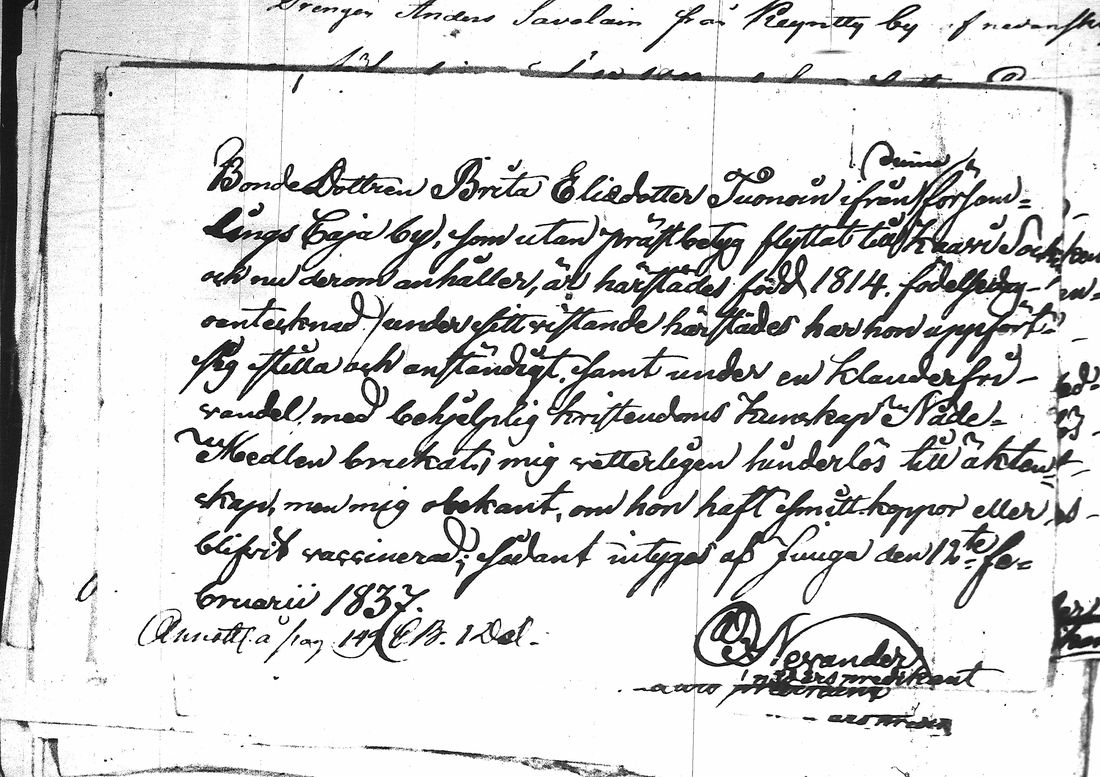 Drengen Anders Savolain från Keyritty by af nedanskr
denna
Bonde Dottren Brita Elisdotter Tuonoin ifrån försam=
lings Caja by, som utan prästbetyg flyttat till Kaavi Socken
och nu derom anhåller, är härstädes född 1814. födelsedag-
oantecknad/under sitt vistande härstädes har hon uppfört
sig stilla och anständigt, samt under en klanderfri
vandel, med behjelplig kristendoms kunskap Nåde=
Medlen brukat, mig vetterligen hinderlös till äkten
skap, men mig obekant, om hon haft smittkoppor eller
blifvit vaccinerad; sådant intygas af Juuga den 12te fe=
bruarii 1837.
Annott. å pag 149 C.B. 1 Del.
Alexander
predikant